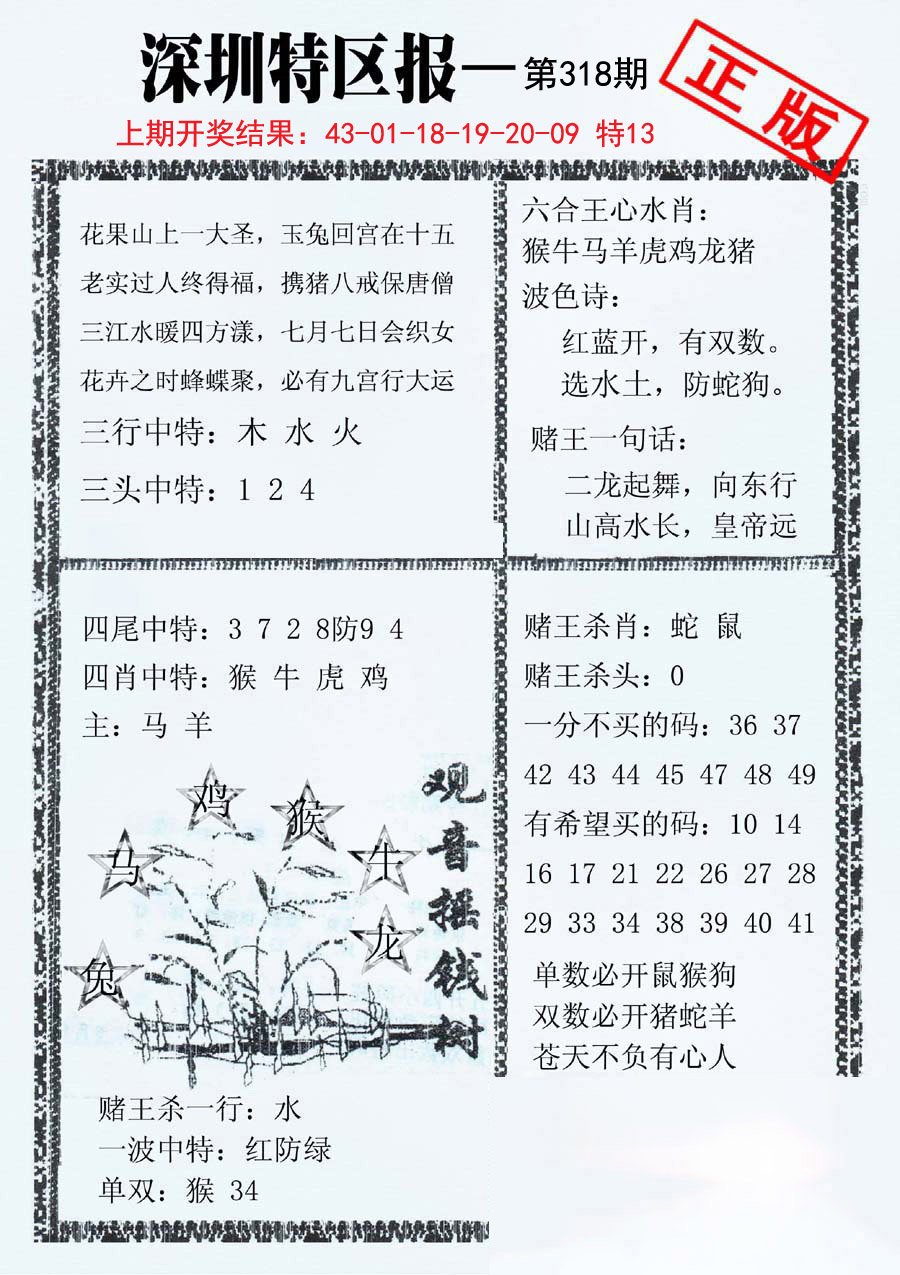 深圳特区报—第318期
正版
上期开奖结果：43-01-18-19-20-09 特13
花果山上一大圣，玉兔回宫在十五
老实过人终得福，携猪八戒保唐僧
三江水暖四方漾，七月七日会织女
花卉之时蜂蝶聚，必有九宫行大运
三行中特：木 水 火
三头中特：1 2 4
六合王心水肖：
猴牛马羊虎鸡龙猪
波色诗：
红蓝开，有双数。
选水土，防蛇狗。
赌王一句话：
二龙起舞，向东行
山高水长，皇帝远
四尾中特：3 7 2 8防9 4
四肖中特：猴 牛 虎 鸡
主：马 羊
鸡
猴
马
牛
龙
兔
观音摇钱树
赌王杀一行：水
一波中特：红防绿
单双：猴 34
赌王杀肖：蛇 鼠
赌王杀头：0
一分不买的码：36 37
42 43 44 45 47 48 49
有希望买的码：10 14
16 17 21 22 26 27 28
29 33 34 38 39 40 41
单数必开鼠猴狗
双数必开猪蛇羊
苍天不负有心人